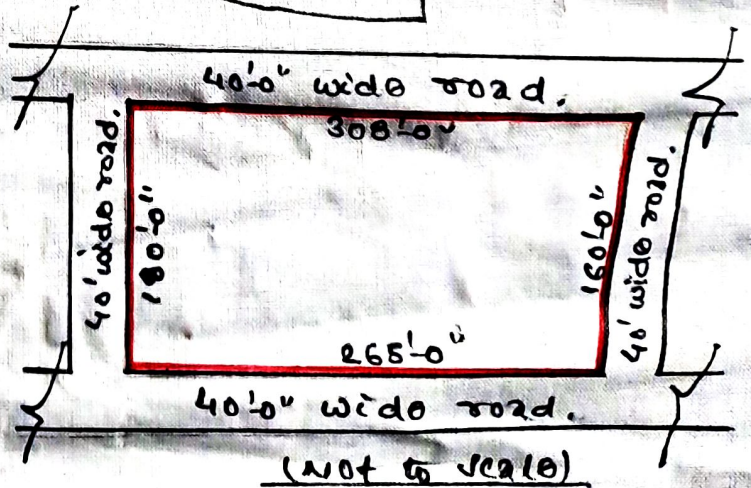 40'-0" wide road.
308'-0"
40' wide road.
180'-0"
160'-0"
40' wide road.
265'-0"
40'-0" wide road.
(Not to scale)